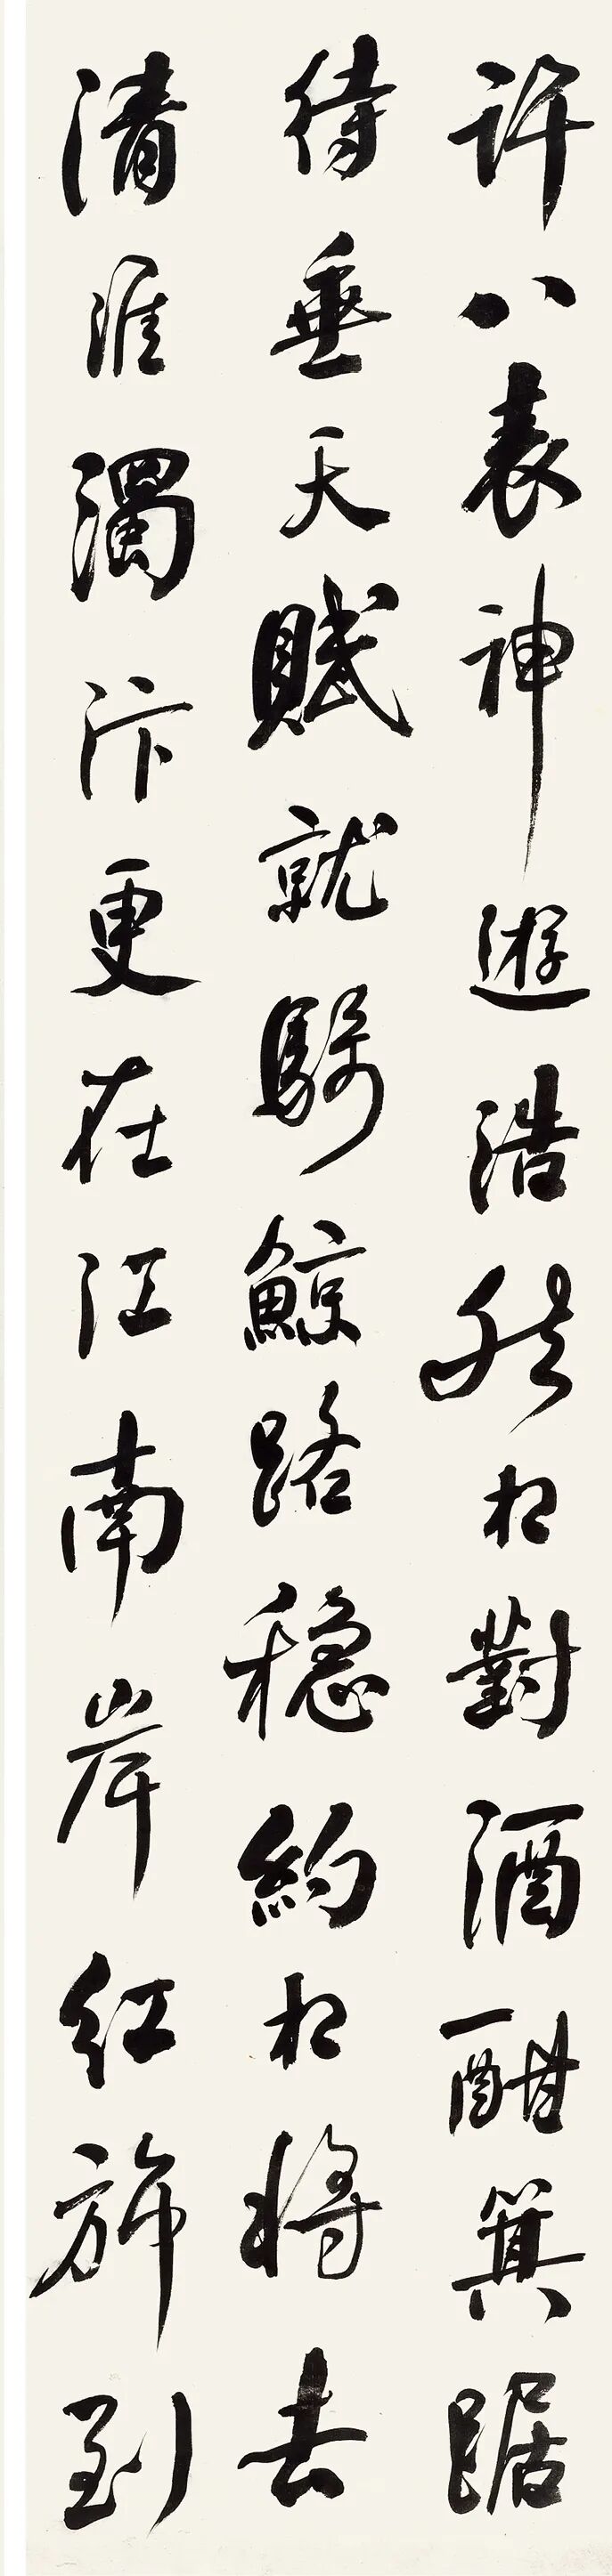 許八表神遊浩然相對酒酣箕踞
待垂天賦就騎鯨路穩約相將去
清淮濁汴更在江南岸紅旆到